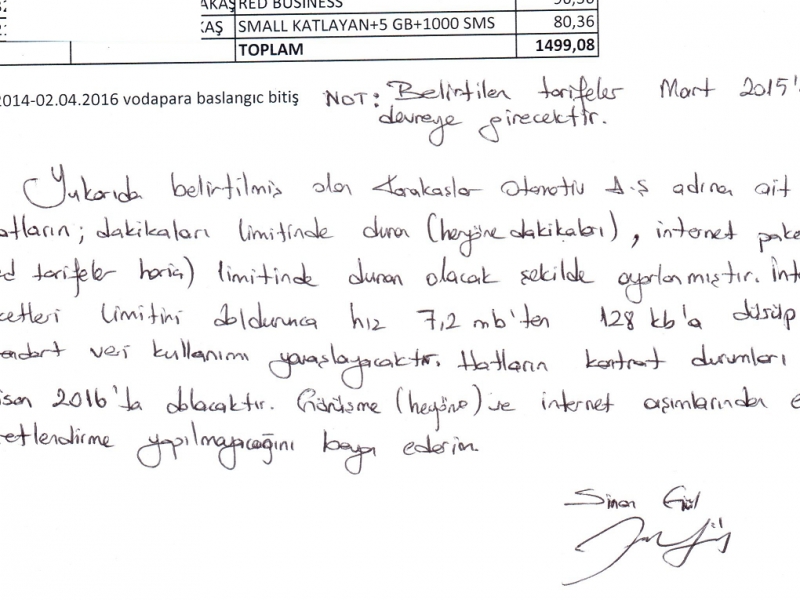 AKAŞ RED BUSINESS
KAŞ SMALL KATLAYAN+5 GB+1000 SMS 80,36
TOPLAM 1499,08
2014-02.04.2016 vodapara baslangıc bitiş NOT: Belirtilen tarifeler Mart 2015'
devreye girecektir.
Yukarıda belirtilmiş olan Karakaşlar Otomotiv A.Ş adına ait
atların; dakikaları limitinde duran (heryöne dakikaları), internet pake
ed tarifeler harici) limitinde duran olacak şekilde ayarlanmıştır. İnte
cetleri limitini doldurunca hız 7,2 mb'ten 128 kb'a düşüp
endart veri kullanımı yavaşlayacaktır. Hatların kontrat durumları
isan 2016'da dolacaktır. Görüşme (heryöne) ve internet aşımlarından e
retlendirme yapılmayacağını beyan ederim.
Sinan Gül